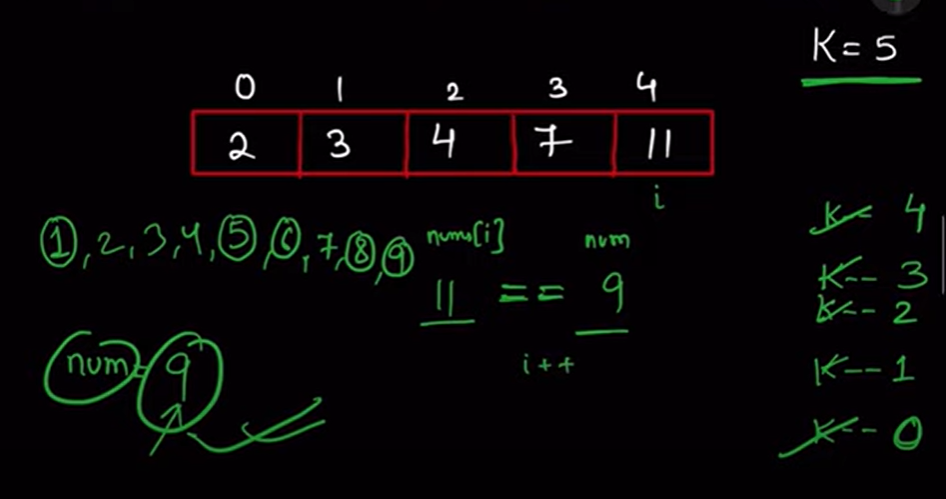 K = 5
0 1 2 3 4
2 3 4 7 11
i
1, 2, 3, 4, 5, 6, 7, 8, 9
nums[i] num
11 == 9
i++
num = 9
K-- 4
K-- 3
K-- 2
K-- 1
K-- 0